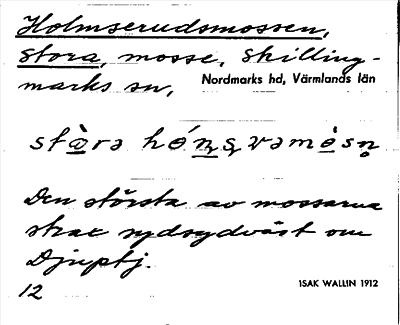 Holmserudsmossen,
Stora, mosse, Skilling-
marks sn,
Nordmarks hd, Värmlands län
Den största av mossarna
strax sydsydväst om
Djuptj.
12
ISAK WALLIN 1912